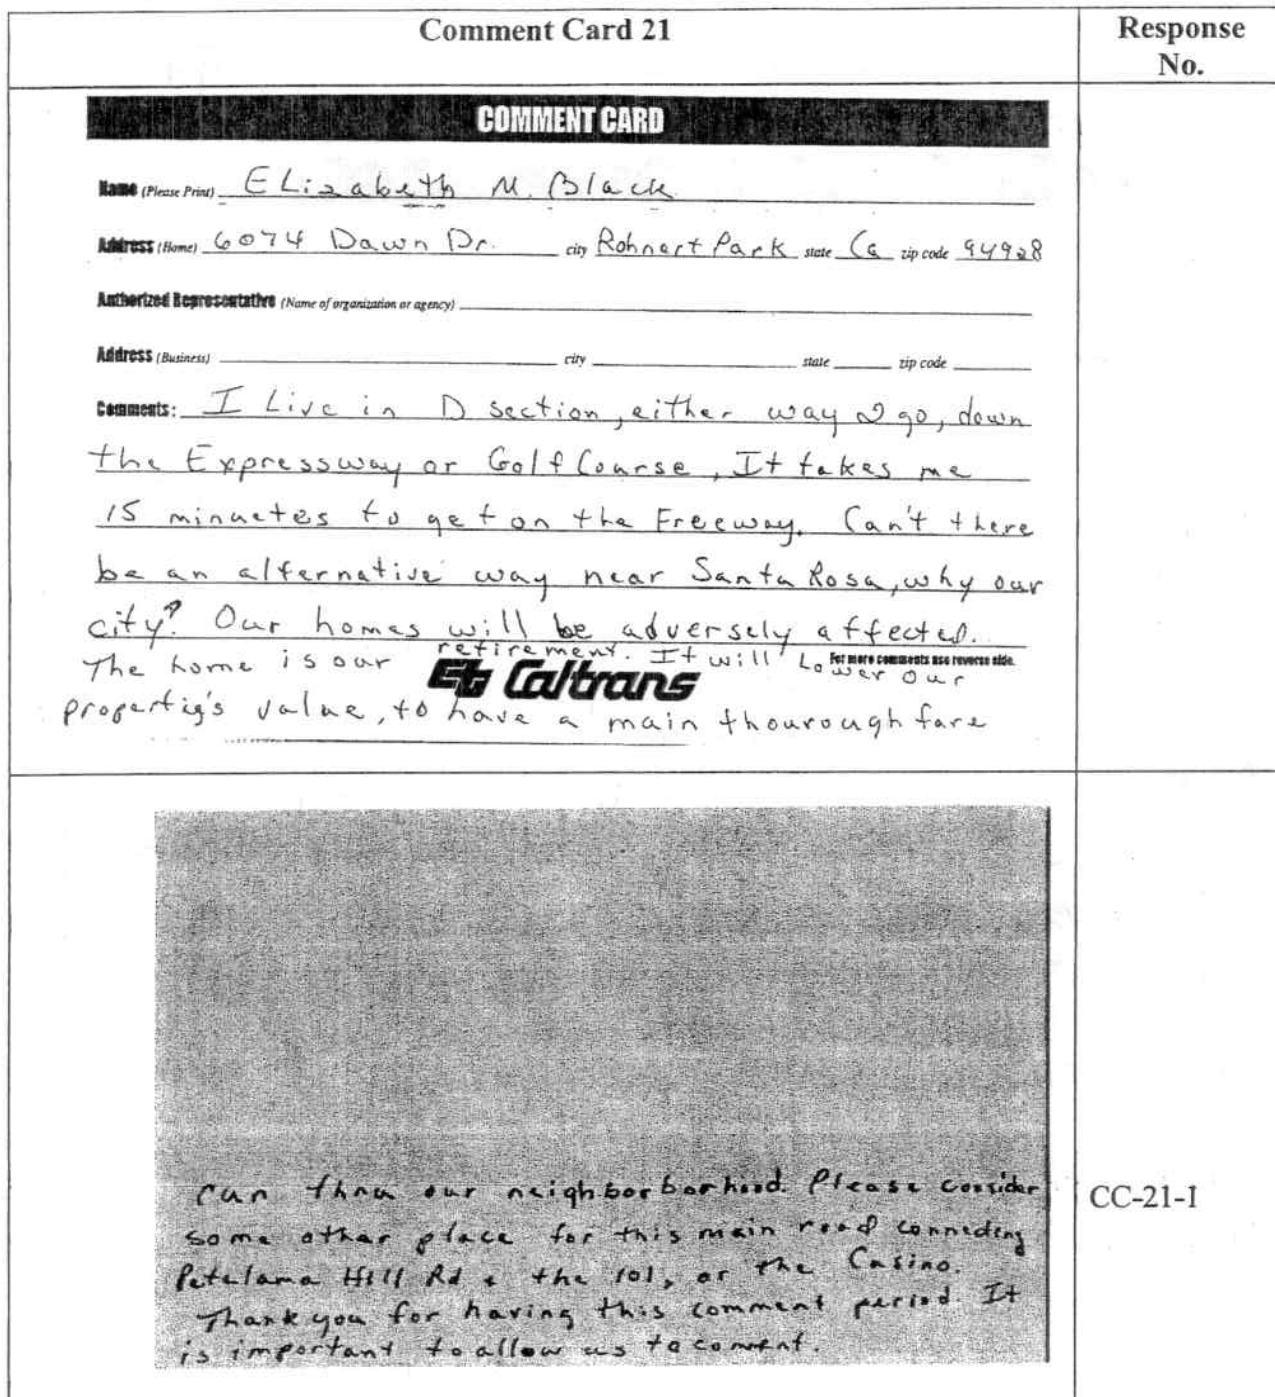 Comment Card 21
Response
No.
COMMENT CARD
Name (Please Print) ELizabeth M. Black
Address (Home) 6074 Dawn Dr. city Rohnert Park state Ca zip code 94928
Authorized Representative (Name of organization or agency)
Address (Business) city state zip code
Comments: I Live in D section, either way I go, down
the Expressway or Golf Course, It takes me
15 minuetes to get on the Freeway. Can't there
be an alternative way near Santa Rosa, why our
city? Our homes will be adversely affected.
For more comments use reverse side.
The home is our retirement. It will Lower our
Caltrans
propertig's value, to have a main thouroughfare
run thru our neighborborhood. Please consider
some other place for this main road connecting
Petalama Hill Rd + the 101, or the Casino.
Thank you for having this comment period. It
is important to allow us to coment.
CC-21-1